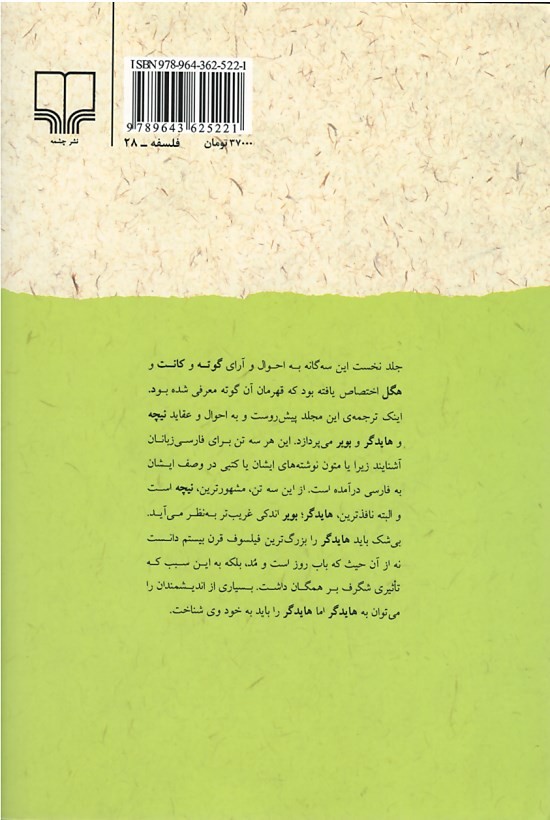 ISBN 978-964-362-522-1
9 789643 625221
۳۷۰۰۰ تومان
فلسفه ــ ۲۸
نشر چشمه
جلد نخست این سه‌گانه به احوال و آرای گوته و کانت و
هگل اختصاص یافته بود که قهرمان آن گوته معرفی شده بود.
اینک ترجمه‌ی این مجلد پیش‌روست و به احوال و عقاید نیچه
و هایدگر و بوبر می‌پردازد. این هر سه تن برای فارسی‌زبانان
آشنایند زیرا یا متون نوشته‌های ایشان یا کتبی در وصف ایشان
به فارسی درآمده است. از این سه تن، مشهورترین، نیچه است
و البته نافذترین، هایدگر؛ بوبر اندکی غریب‌تر به‌نظر می‌آید.
بی‌شک باید هایدگر را بزرگ‌ترین فیلسوف قرن بیستم دانست
نه از آن حیث که باب روز است و مُد، بلکه به این سبب که
تأثیری شگرف بر همگان داشت. بسیاری از اندیشمندان را
می‌توان به هایدگر اما هایدگر را باید به خود وی شناخت.